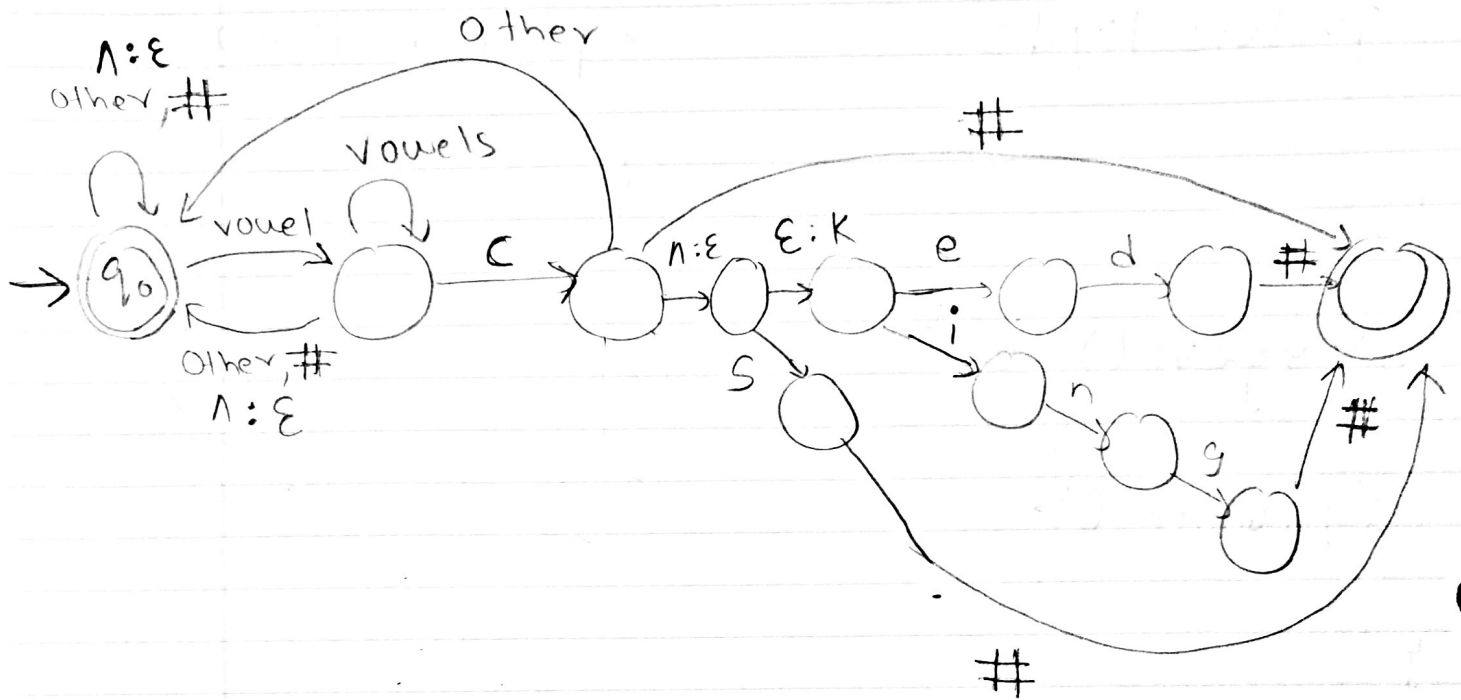 Other
ʌ:ε
other, #
#
vowels
vowel
q0
C
ʌ:ε
ε:k
e
d
#
i
Other, #
ʌ:ε
S
n
#
g
#